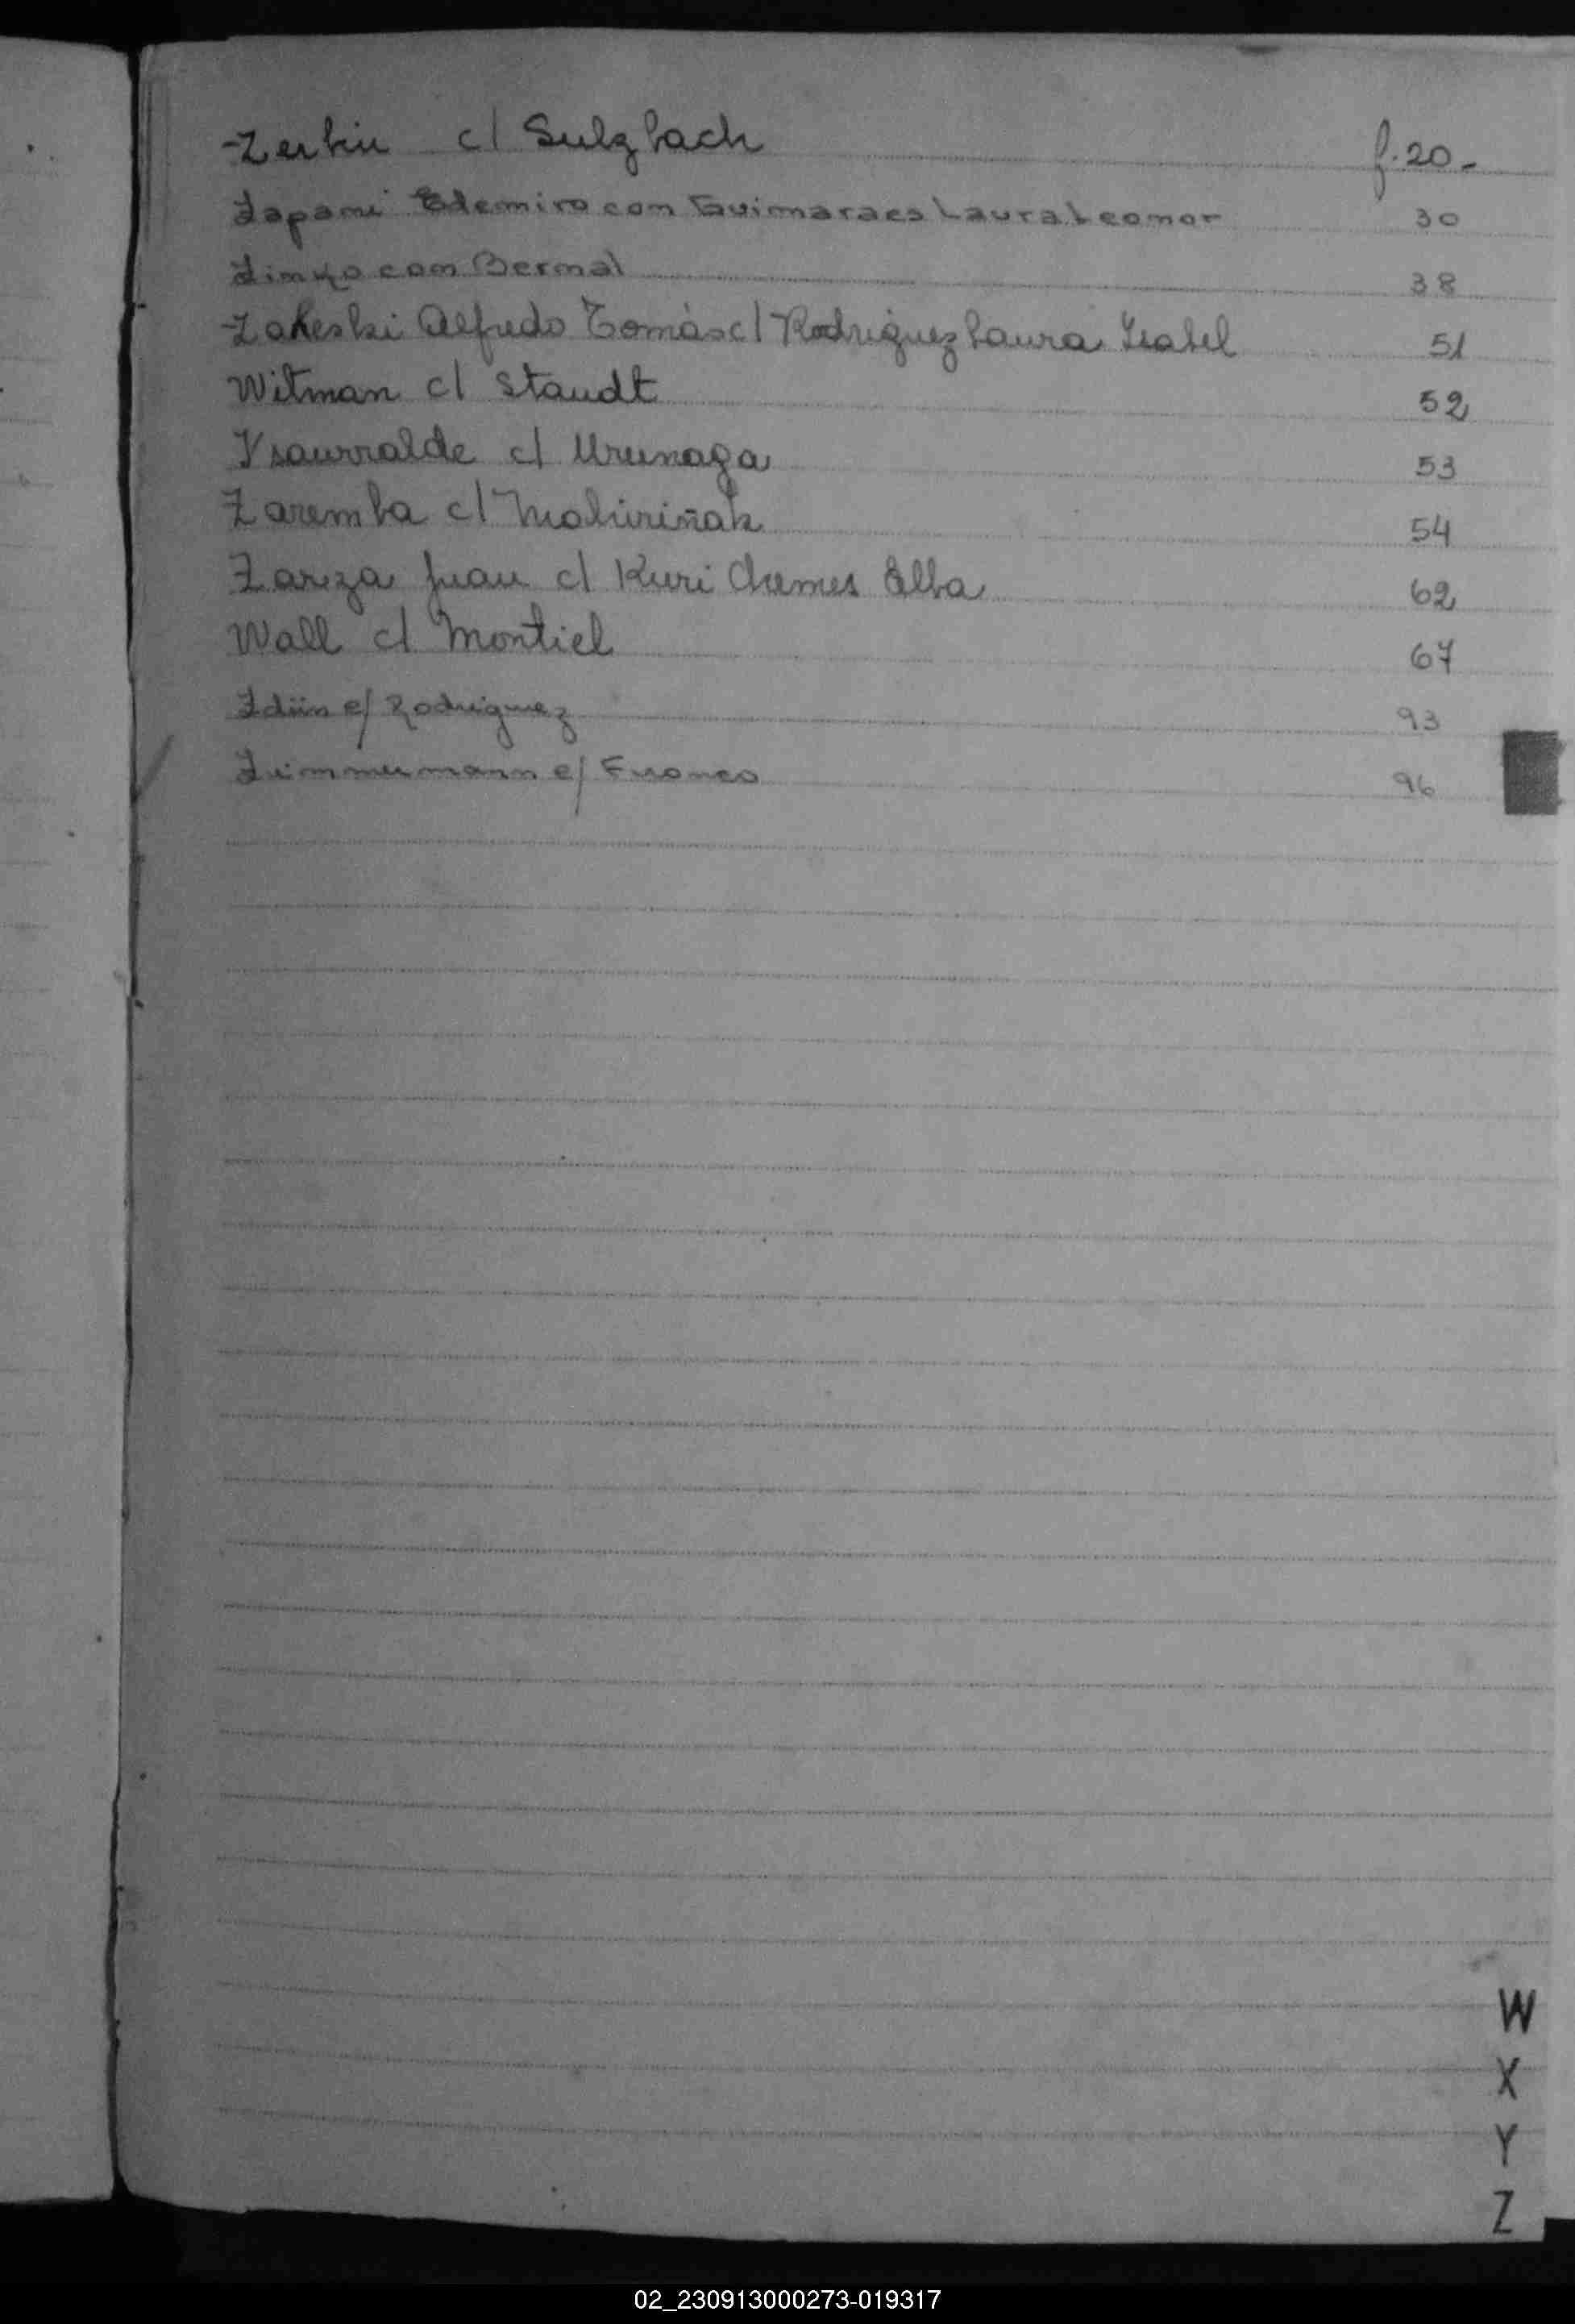 Zerbin c/ Sulzbach f. 20-
Zapani Edemiro con Guimaraes Laura Leonor 30
Zingo con Bernal 38
Zakeski Alfredo Tomás c/ Rodriguez Laura Isabel 51
Witman c/ Staudt 52
Ysaurralde c/ Urunaga 53
Zaremba c/ 54
Zarza Juan c/ Kuri Chemes Elba 62
Wall c/ Montiel 67
c/ Rodriguez 93
Zimmermann c/ Franco 96
W
X
Y
Z
02_230913000273-019317